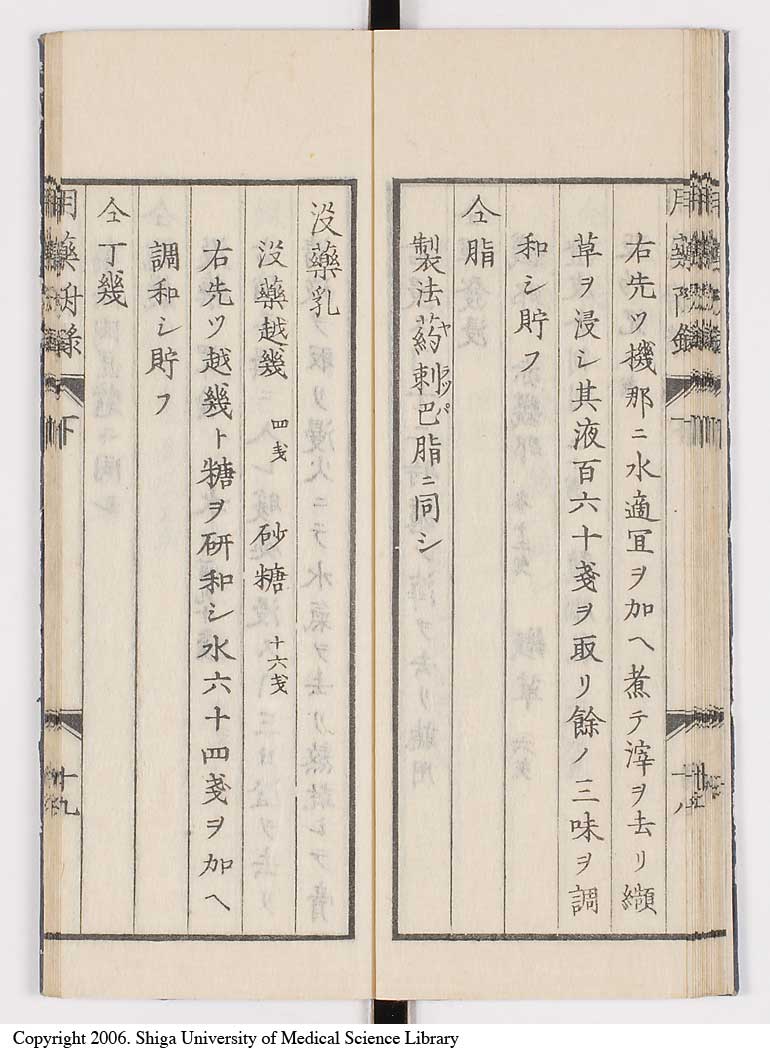 右先ツ機那ニ水適宜ヲ加ヘ煮テ滓ヲ去リ纈
草ヲ浸シ其液百六十戔ヲ取リ餘ノ三味ヲ調
和シ貯フ
仝脂
製法葯剌巴脂ニ同シ
ヤラッパ
没藥乳
没藥越幾 四戔 砂糖 十六戔
右先ツ越幾ト糖ヲ研和シ水六十四戔ヲ加ヘ
調和シ貯フ
仝丁幾
用藥附録 下 十九
Copyright 2006. Shiga University of Medical Science Library